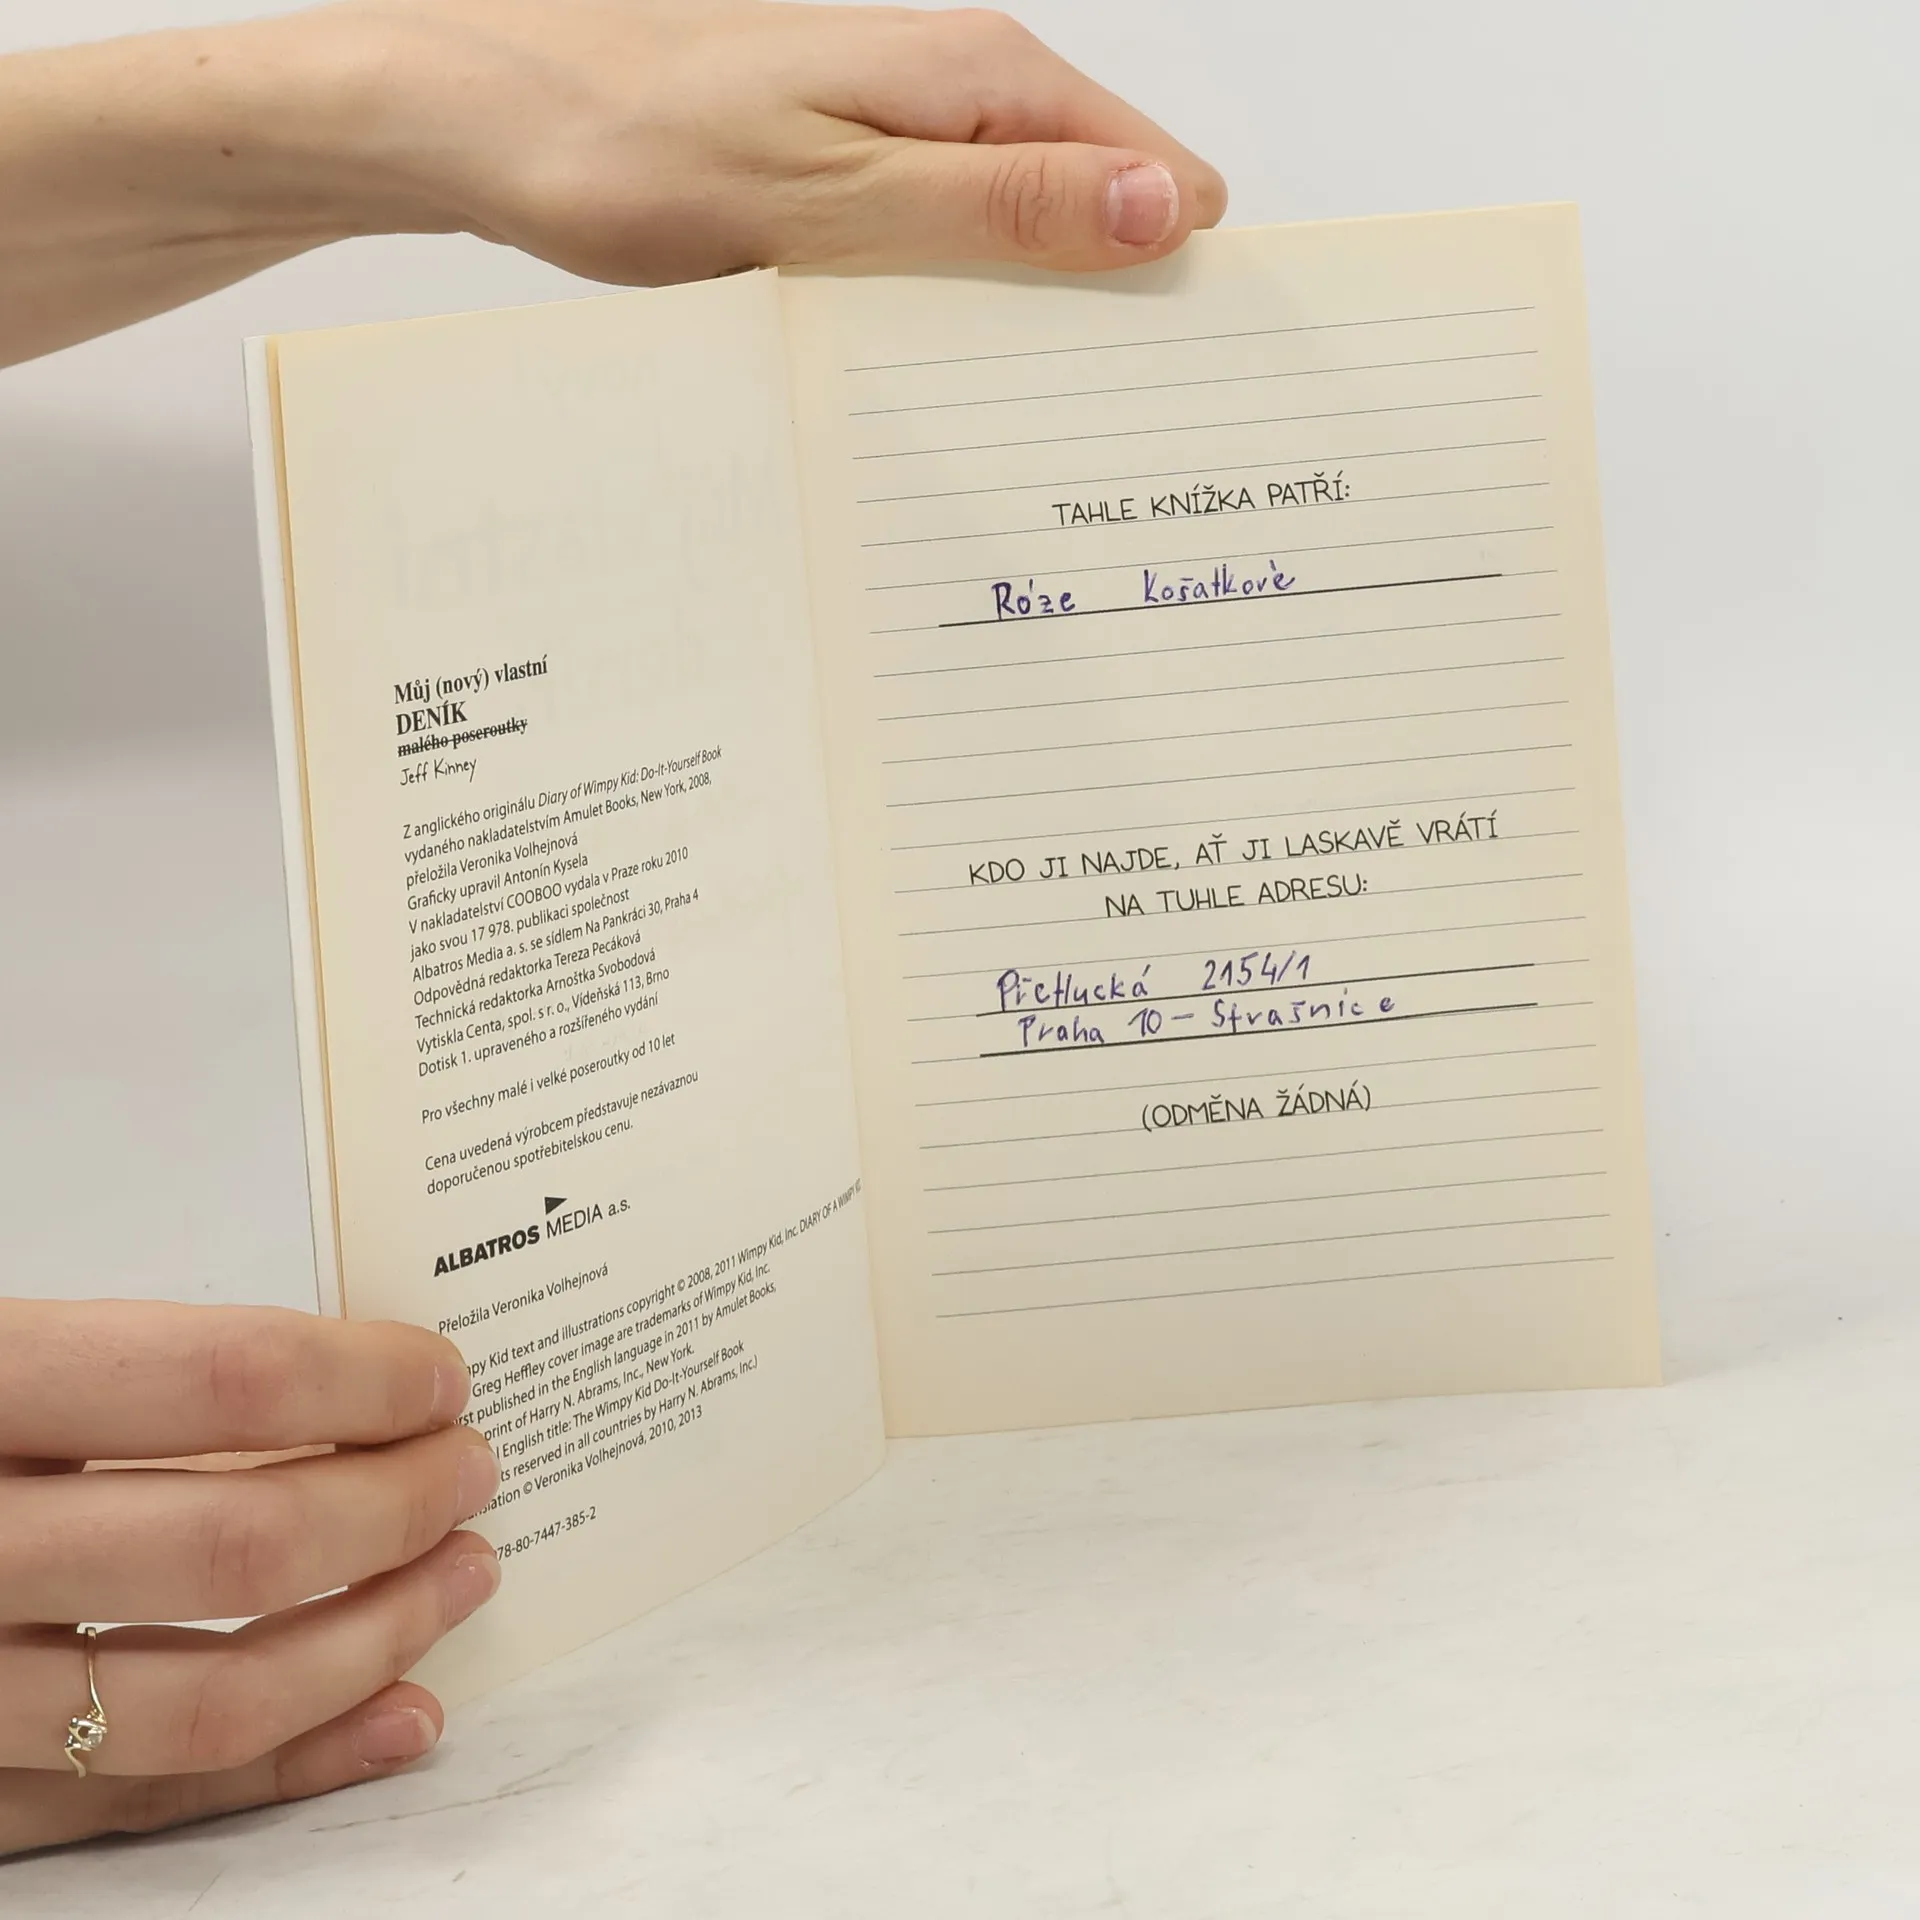 Můj (nový) vlastní
DENÍK
malého poseroutky
Jeff Kinney
Z anglického originálu Diary of Wimpy Kid: Do-It-Yourself Book
vydaného nakladatelstvím Amulet Books, New York, 2008,
přeložila Veronika Volhejnová
Graficky upravil Antonín Kysela
V nakladatelství COOBOO vydala v Praze roku 2010
jako svou 17 978. publikaci společnost
Albatros Media a. s. se sídlem Na Pankráci 30, Praha 4
Odpovědná redaktorka Tereza Pecáková
Technická redaktorka Arnoštka Svobodová
Vytiskla Centa, spol. s r. o., Vídeňská 113, Brno
Dotisk 1. upraveného a rozšířeného vydání
Pro všechny malé i velké poseroutky od 10 let
Cena uvedená výrobcem představuje nezávaznou
doporučenou spotřebitelskou cenu.
ALBATROS MEDIA a.s.
Přeložila Veronika Volhejnová
py Kid text and illustrations copyright © 2008, 2011 Wimpy Kid, Inc. DIARY OF A WIMPY
Greg Heffley cover image are trademarks of Wimpy Kid, Inc.
rst published in the English language in 2011 by Amulet Books,
print of Harry N. Abrams, Inc., New York.
l English title: The Wimpy Kid Do-It-Yourself Book
ts reserved in all countries by Harry N. Abrams, Inc.)
nslation © Veronika Volhejnová, 2010, 2013
78-80-7447-385-2
TAHLE KNÍŽKA PATŘÍ:
Róze Košatkové
KDO JI NAJDE, AŤ JI LASKAVĚ VRÁTÍ
NA TUHLE ADRESU:
Přetlucká 2154/1
Praha 10 - Strašnice
(ODMĚNA ŽÁDNÁ)